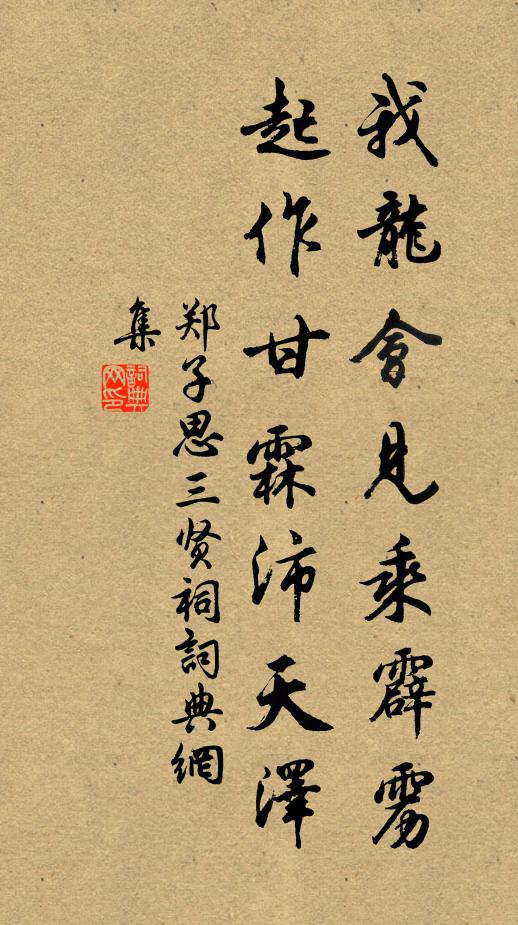 我龍會見乘霹雳
起作甘霖沛天澤
郑子思三贤祠詞典網
集
詞典網印